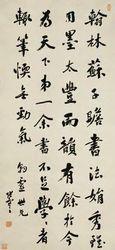 翰林蘇子瞻書法娟秀雖
用墨太豐而韻有餘於今
為天下第一余書不足學〻者
輒筆愞無勁氣 世兄